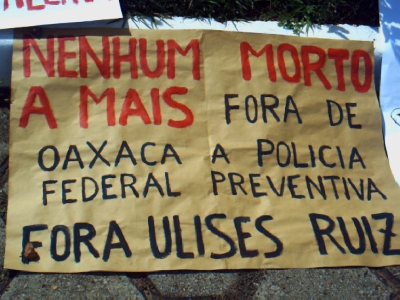 NENHUM MORTO
A MAIS FORA DE
OAXACA A POLICIA
FEDERAL PREVENTIVA
FORA ULISES RUIZ